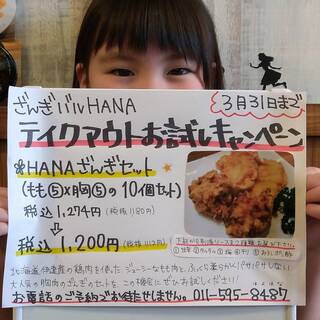 ざんぎバルHANA
3月31日まで
テイクアウトお試しキャンペーン
HANAざんぎセット
(もも⑤×胸⑤の10個セット)
税込1,274円(税抜1180円)
⇩
税込1,200円(税抜1112円)
北海道伊達産の鶏肉を使った、ジューシーなもも肉と、ふっくら柔らかくパサパサしない
大人気の胸肉のざんぎのセットをこの機会にぜひお試しください!
お電話のご予約でお待たせしません。011-595-8487